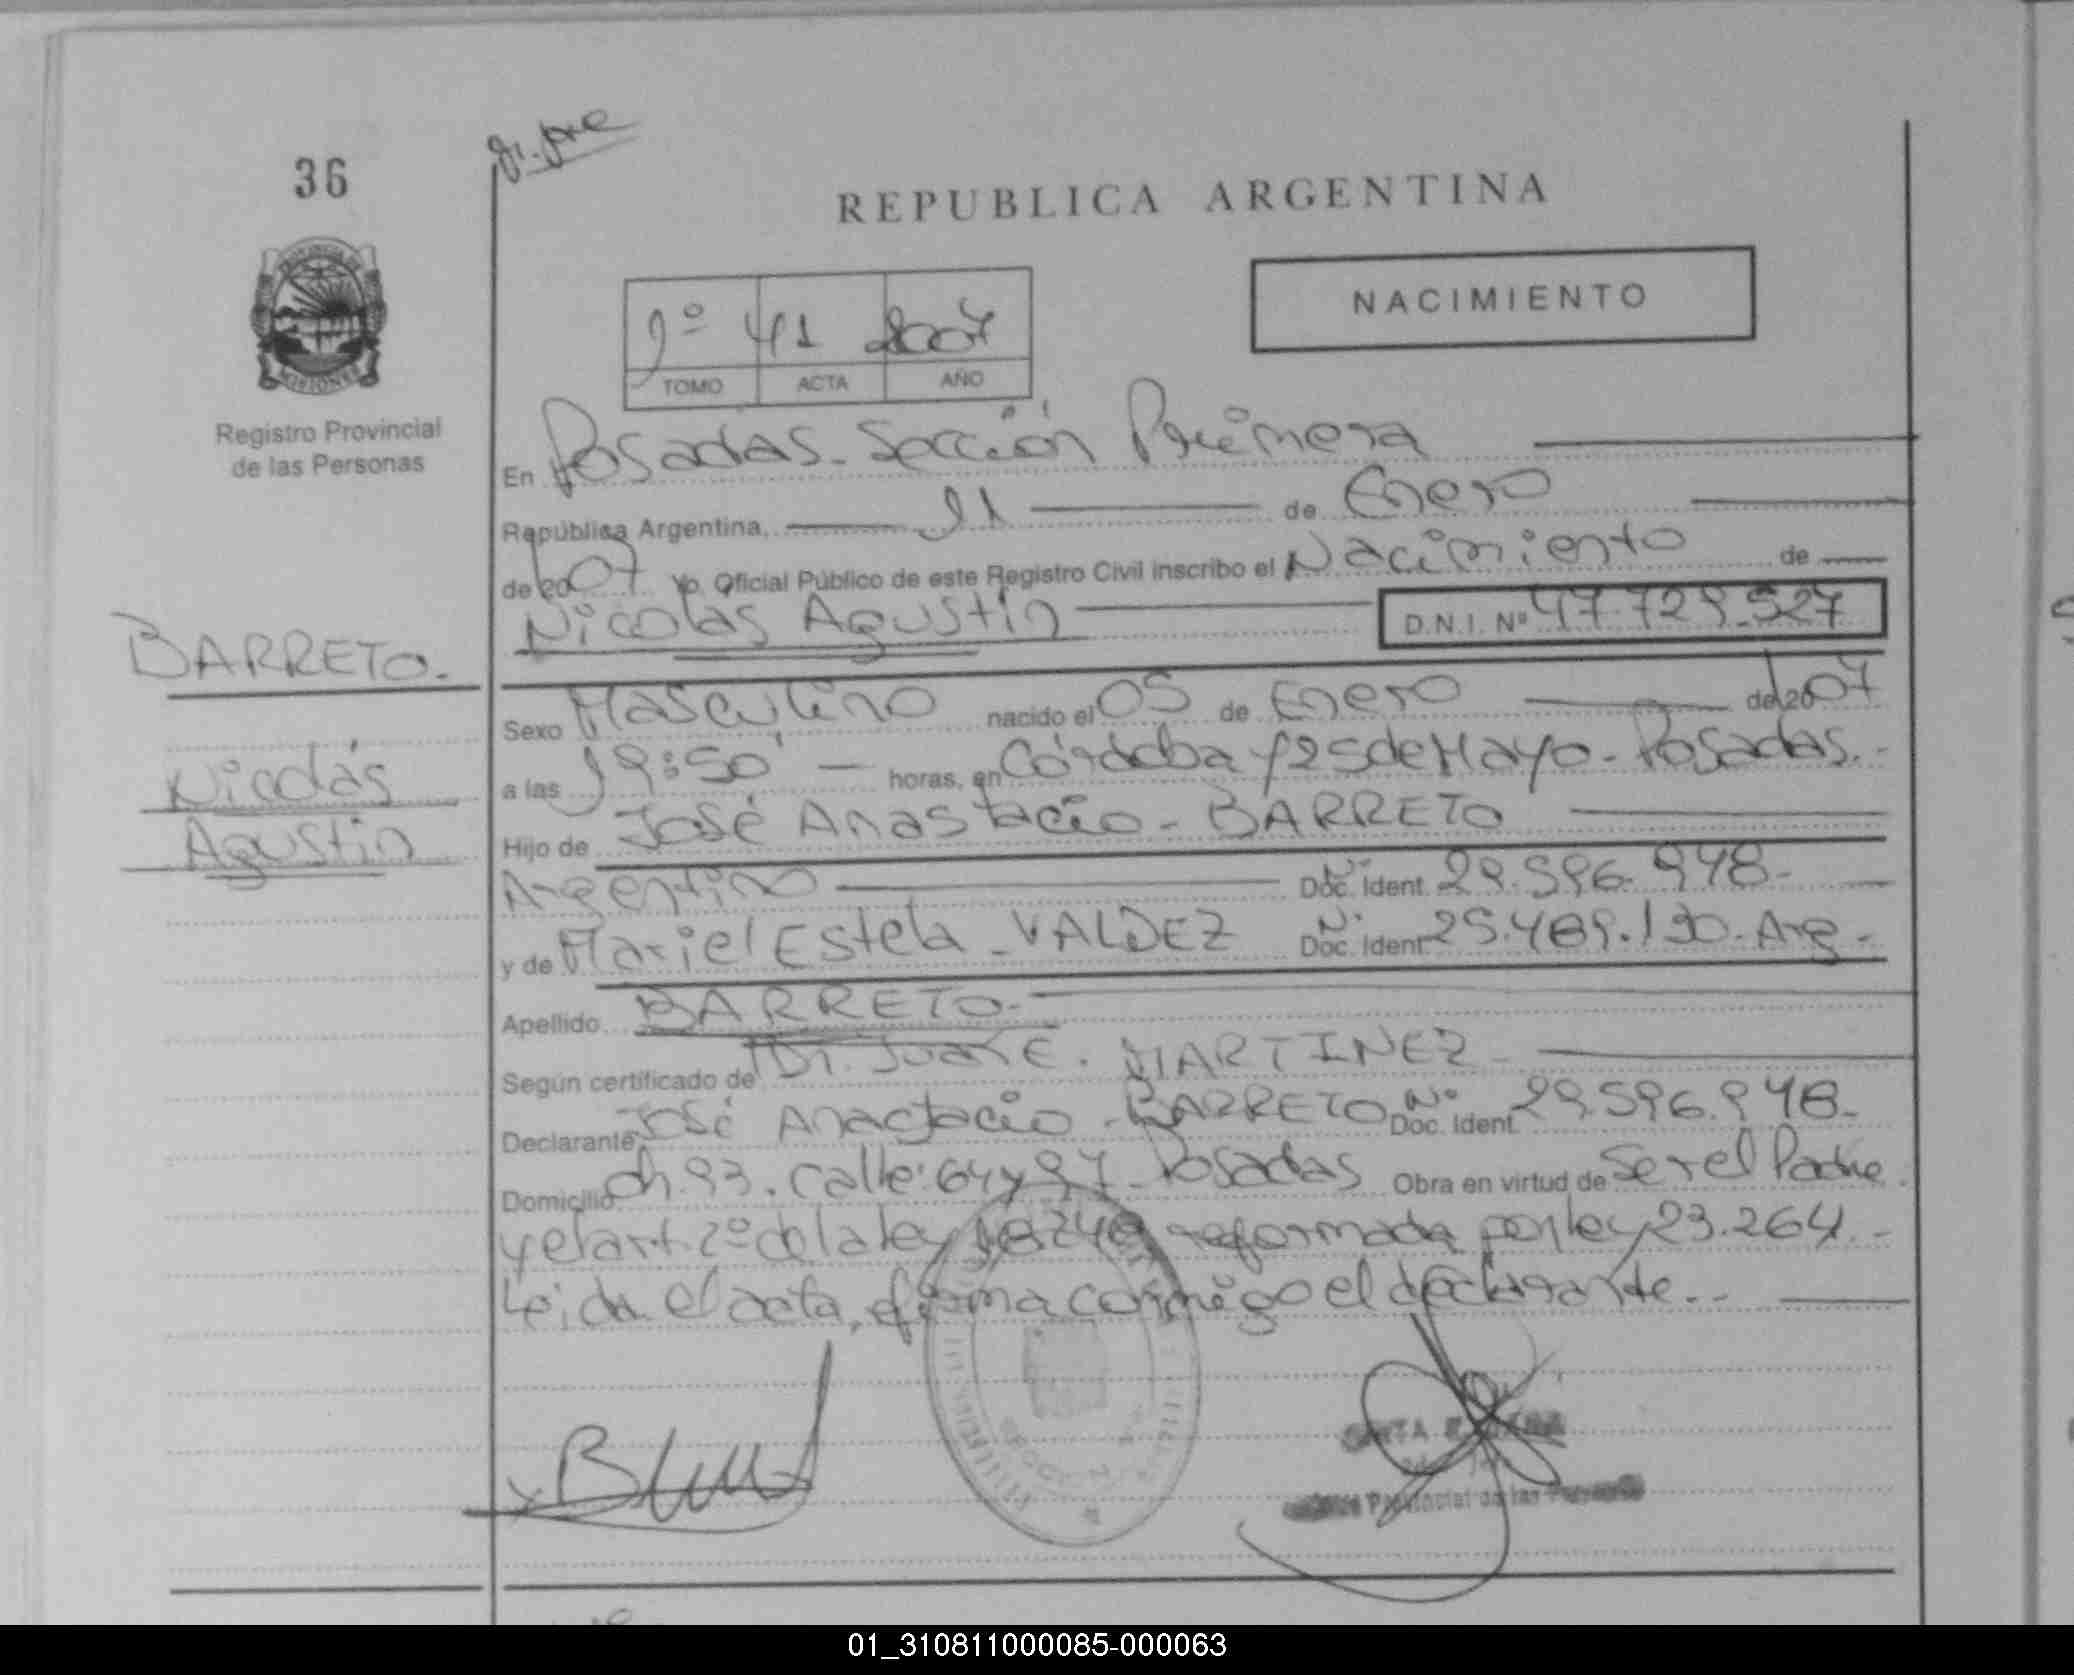 36
REPUBLICA ARGENTINA
NACIMIENTO
1º 41 2007
TOMO ACTA AÑO
PROVINCIA DE MISIONES
Registro Provincial
de las Personas
En Posadas - Sección Primera
República Argentina, 11 de Enero
de 2007 Yo, Oficial Público de este Registro Civil inscribo el Nacimiento de
Nicolás Agustín D.N.I. Nº 47.729.527
BARRETO.
Nicolás
Agustín
Sexo Masculino nacido el 05 de Enero de 2007
a las 19:50' horas, en Córdoba y 25 de Mayo - Posadas.-
Hijo de José Anastacio - BARRETO
Argentino Nº Doc. Ident. 29.596.948-
y de Mariel Estela - VALDEZ Nº Doc. Ident. 25.489.190. Arg.-
Apellido BARRETO-
Según certificado de Dr. Juan E. MARTINEZ -
Declarante José Anastacio - BARRETO Nº Doc. Ident. 29.596.948-
Domicilio ch 93. calle: 64 y 97 - Posadas Obra en virtud de Ser el Padre.
y el art. 2º de la ley 18248 reformada por ley 23.264.-
Leída el acta, firma conmigo el declarante.-
Provincial de las
01_310811000085-000063